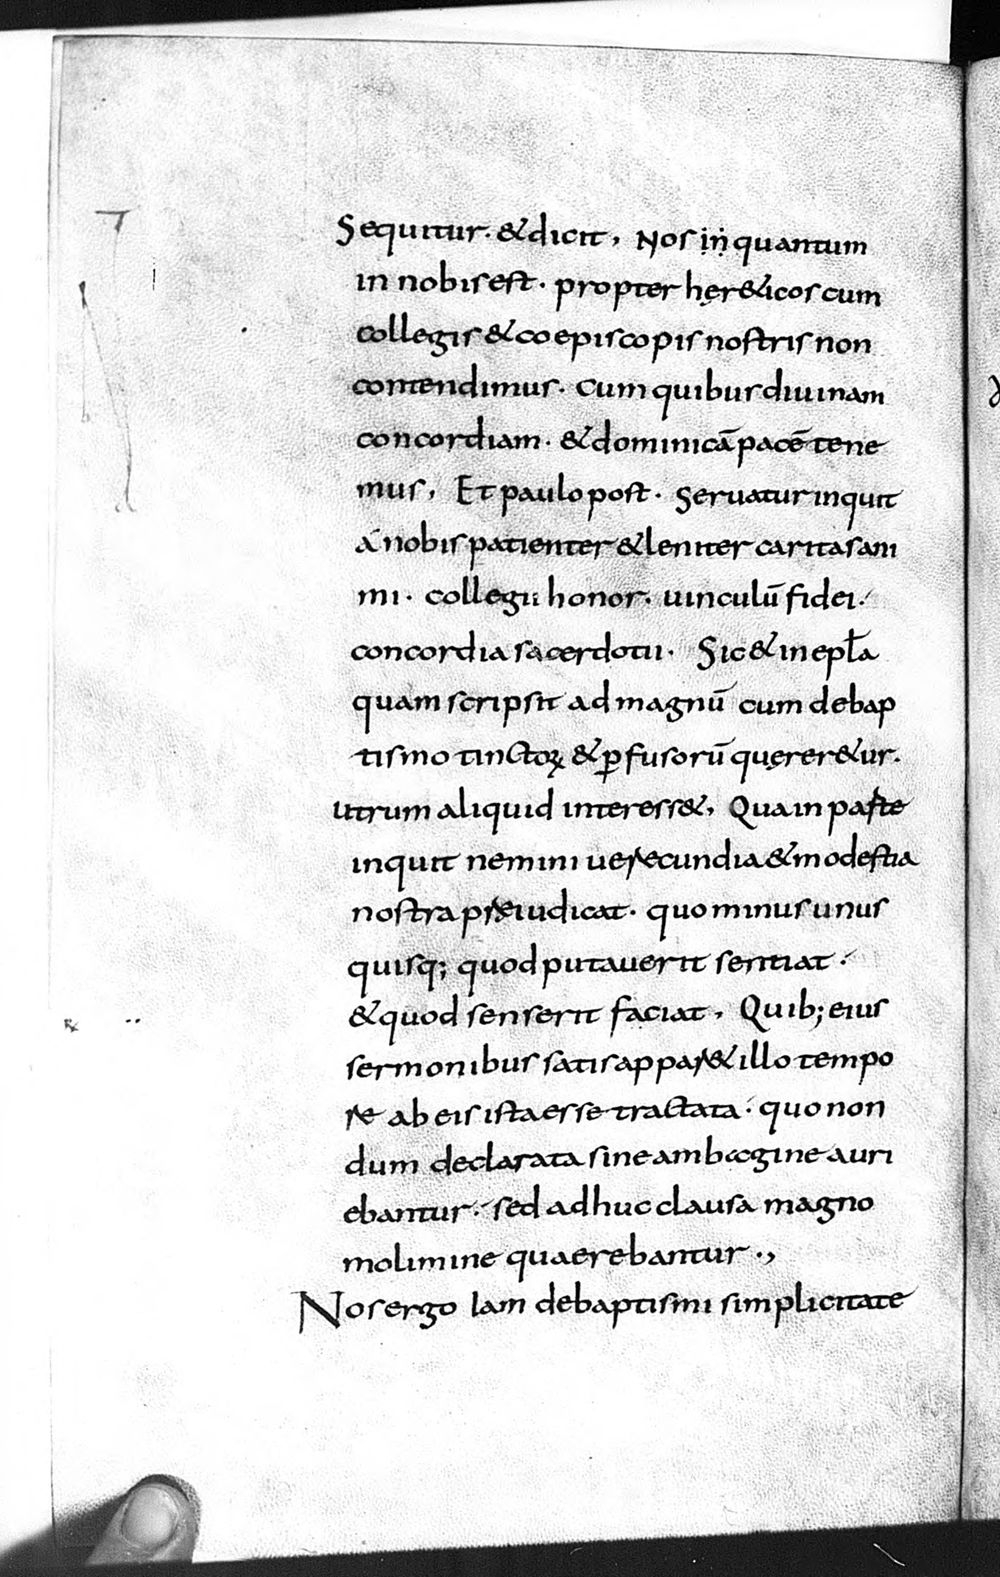 Sequitur. & dicit, Nos iṅ quantum
in nobis est. propter hęr&icos cum
collegis & coepiscopis nostris non
contendimus. cum quibus diuinam
concordiam. & dominicā pacē tene
mus, Et paulo post. Seruatur inquit
a nobis patienter & leniter caritas ani
mi. collegii honor. uinculū fidei.
concordia sacerdotii. Sic & in epl̄a
quam scripsit ad magnū cum de bap
tismo tinctoꝝ & ꝑfusorū quęrer&ur.
utrum aliquid interess&, Qua in parte
inquit nemini uerecundia & modestia
nostra preiudicat. quominus unus
quisq; quod putauerit sentiat.
& quod senserit faciat, Quib; eius
sermonibus satis appar& illo tempo
re ab eis ista esse tractata. quo non
dum declarata sine ambagine auri
ebantur. sed adhuc clausa magno
molimine quaerebantur.,
Nos ergo iam de baptismi simplicitate